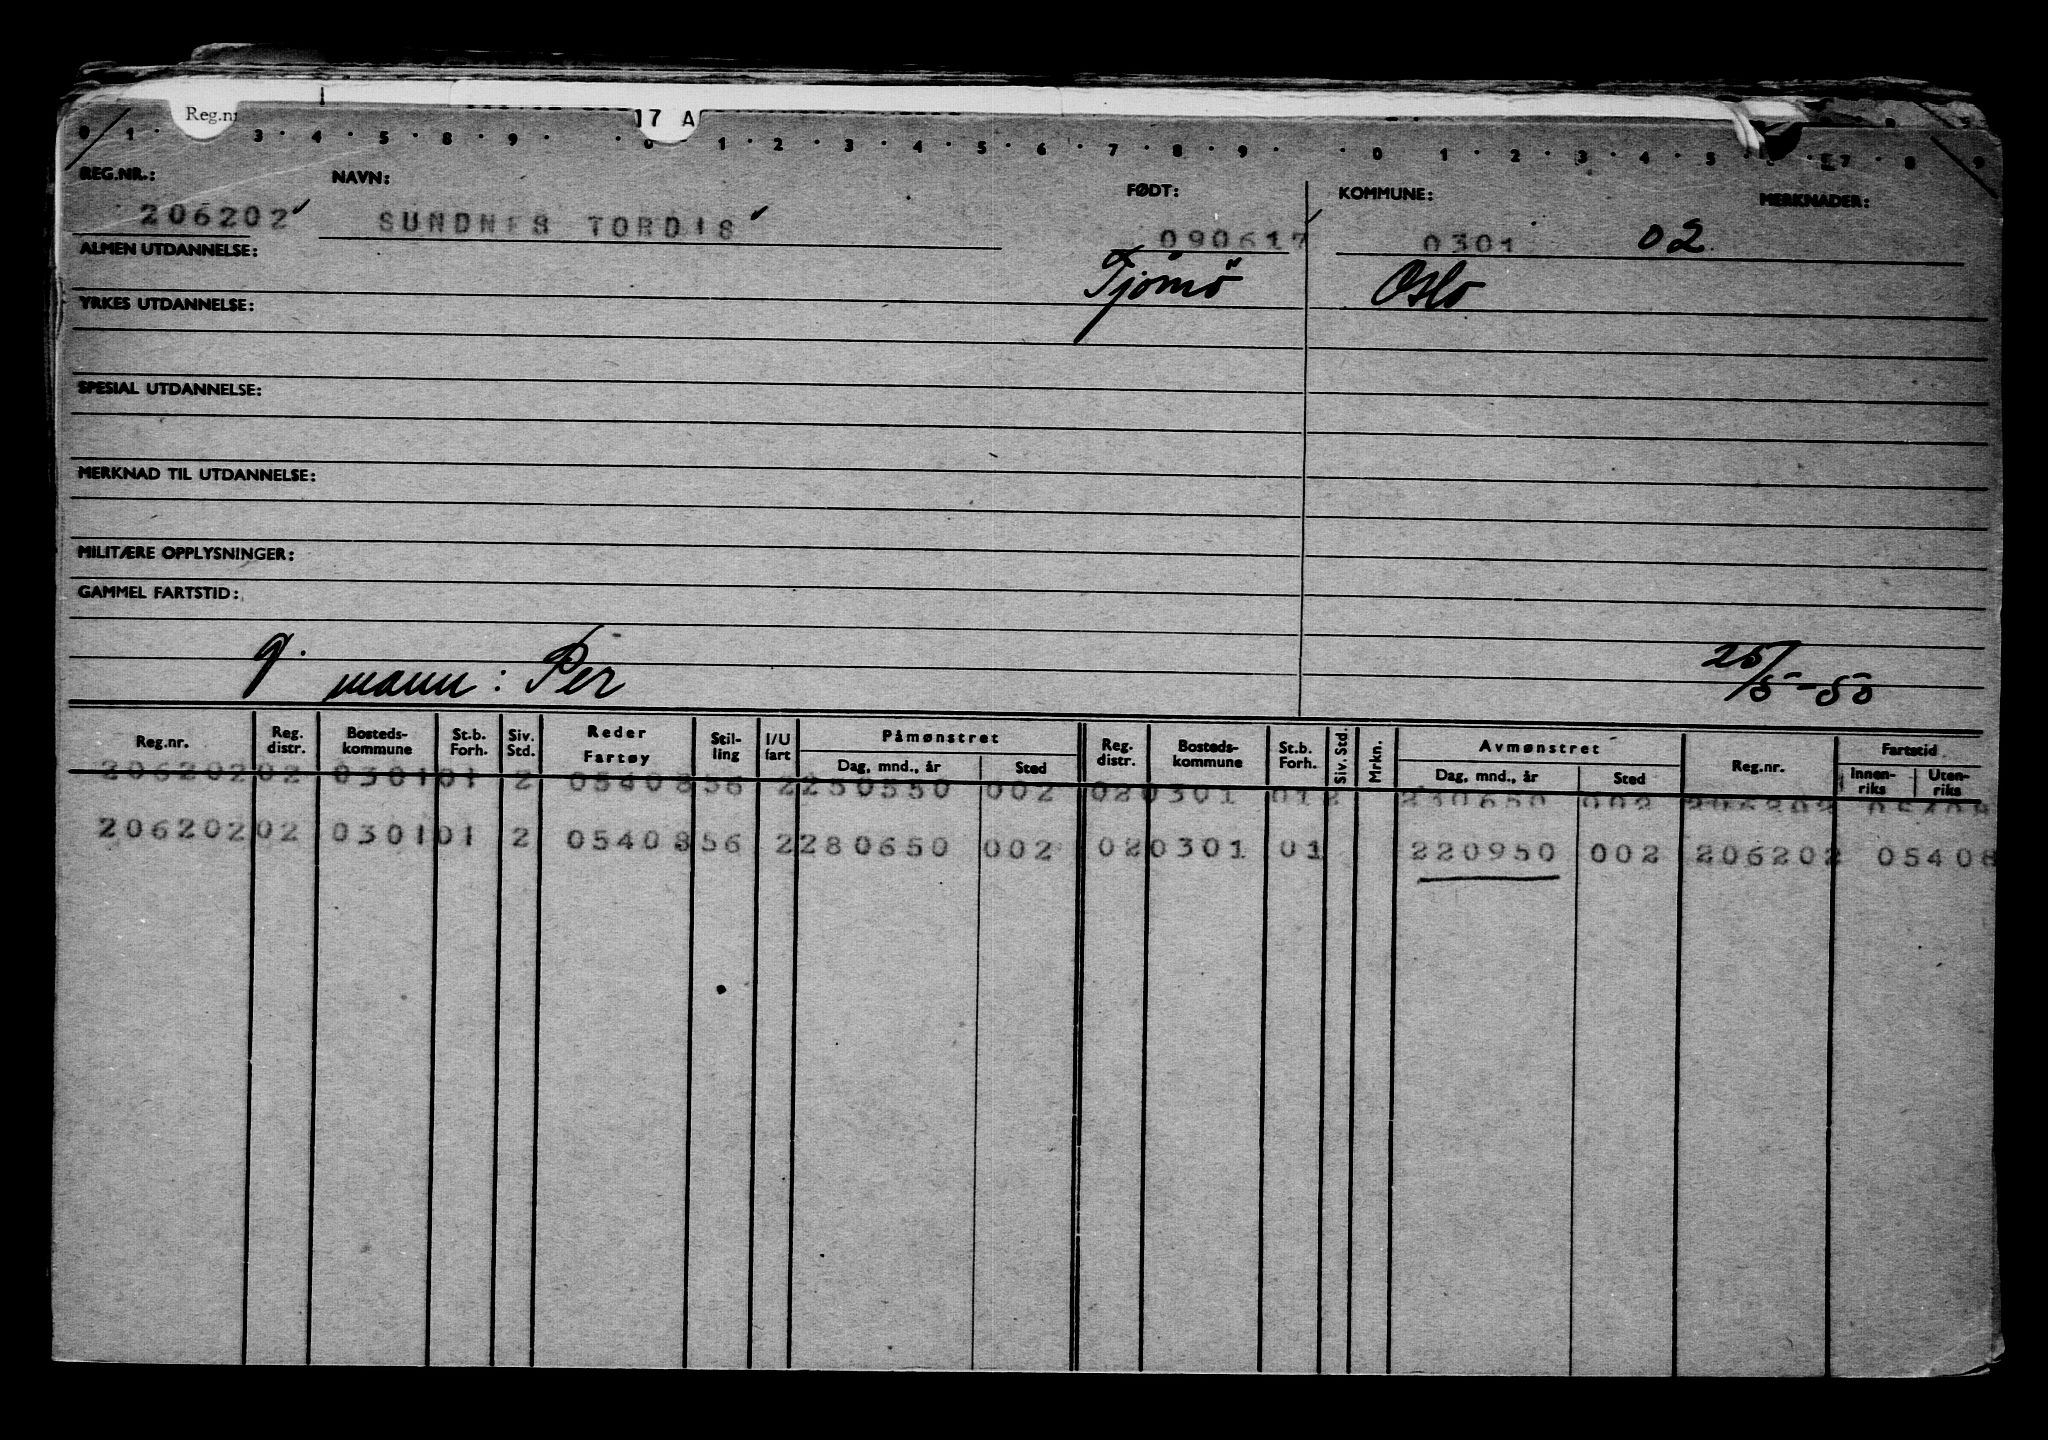 Reg.nr
17 A
0 1 3 4 5 8 9 0 1 2 3 4 5 6 7 8 9 0 1 2 3 4 5 6 7 8 9
REG.NR.: NAVN: FØDT: KOMMUNE: MERKNADER:
206202 SUNDNES TORDIS 090617 0301 02
ALMEN UTDANNELSE: Tjömö Oslo
YRKES UTDANNELSE:
SPESIAL UTDANNELSE:
MERKNAD TIL UTDANNELSE:
MILITÆRE OPPLYSNINGER:
GAMMEL FARTSTID:
g. mann: Per 25/5-50
Reg.nr. Reg. distr. Bosteds-kommune St.b. Forh. Siv. Std. Reder Fartøy Stil-ling I/U fart Påmønstret Dag, mnd., år Sted Reg. distr. Bosteds-kommune St.b. Forh. Siv. Std. Mrkn. Avmønstret Dag, mnd., år Sted Reg.nr. Fartstid Innen-riks Uten-riks
206202 02 0301 01 2 05408 56 2 250550 002 02 0301 01 2 230650 002 206202 05408
206202 02 0301 01 2 05408 56 2 280650 002 02 0301 01 220950 002 206202 05408